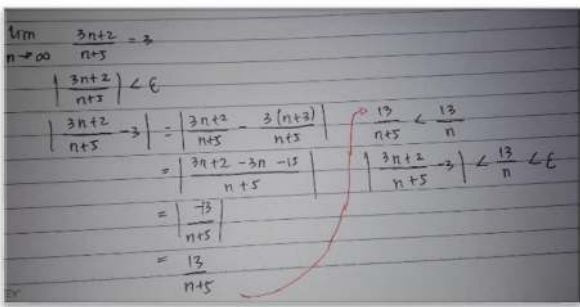 lim n→∞ 3n+2/n+5 = 3
|3n+2/n+5| < ε
|3n+2/n+5 - 3| = |3n+2/n+5 - 3(n+3)/n+5|
= |3n+2 - 3n - 15/n+5|
= |-13/n+5|
= 13/n+5
13/n+5 < 13/n
|3n+2/n+5 - 3| < 13/n < ε